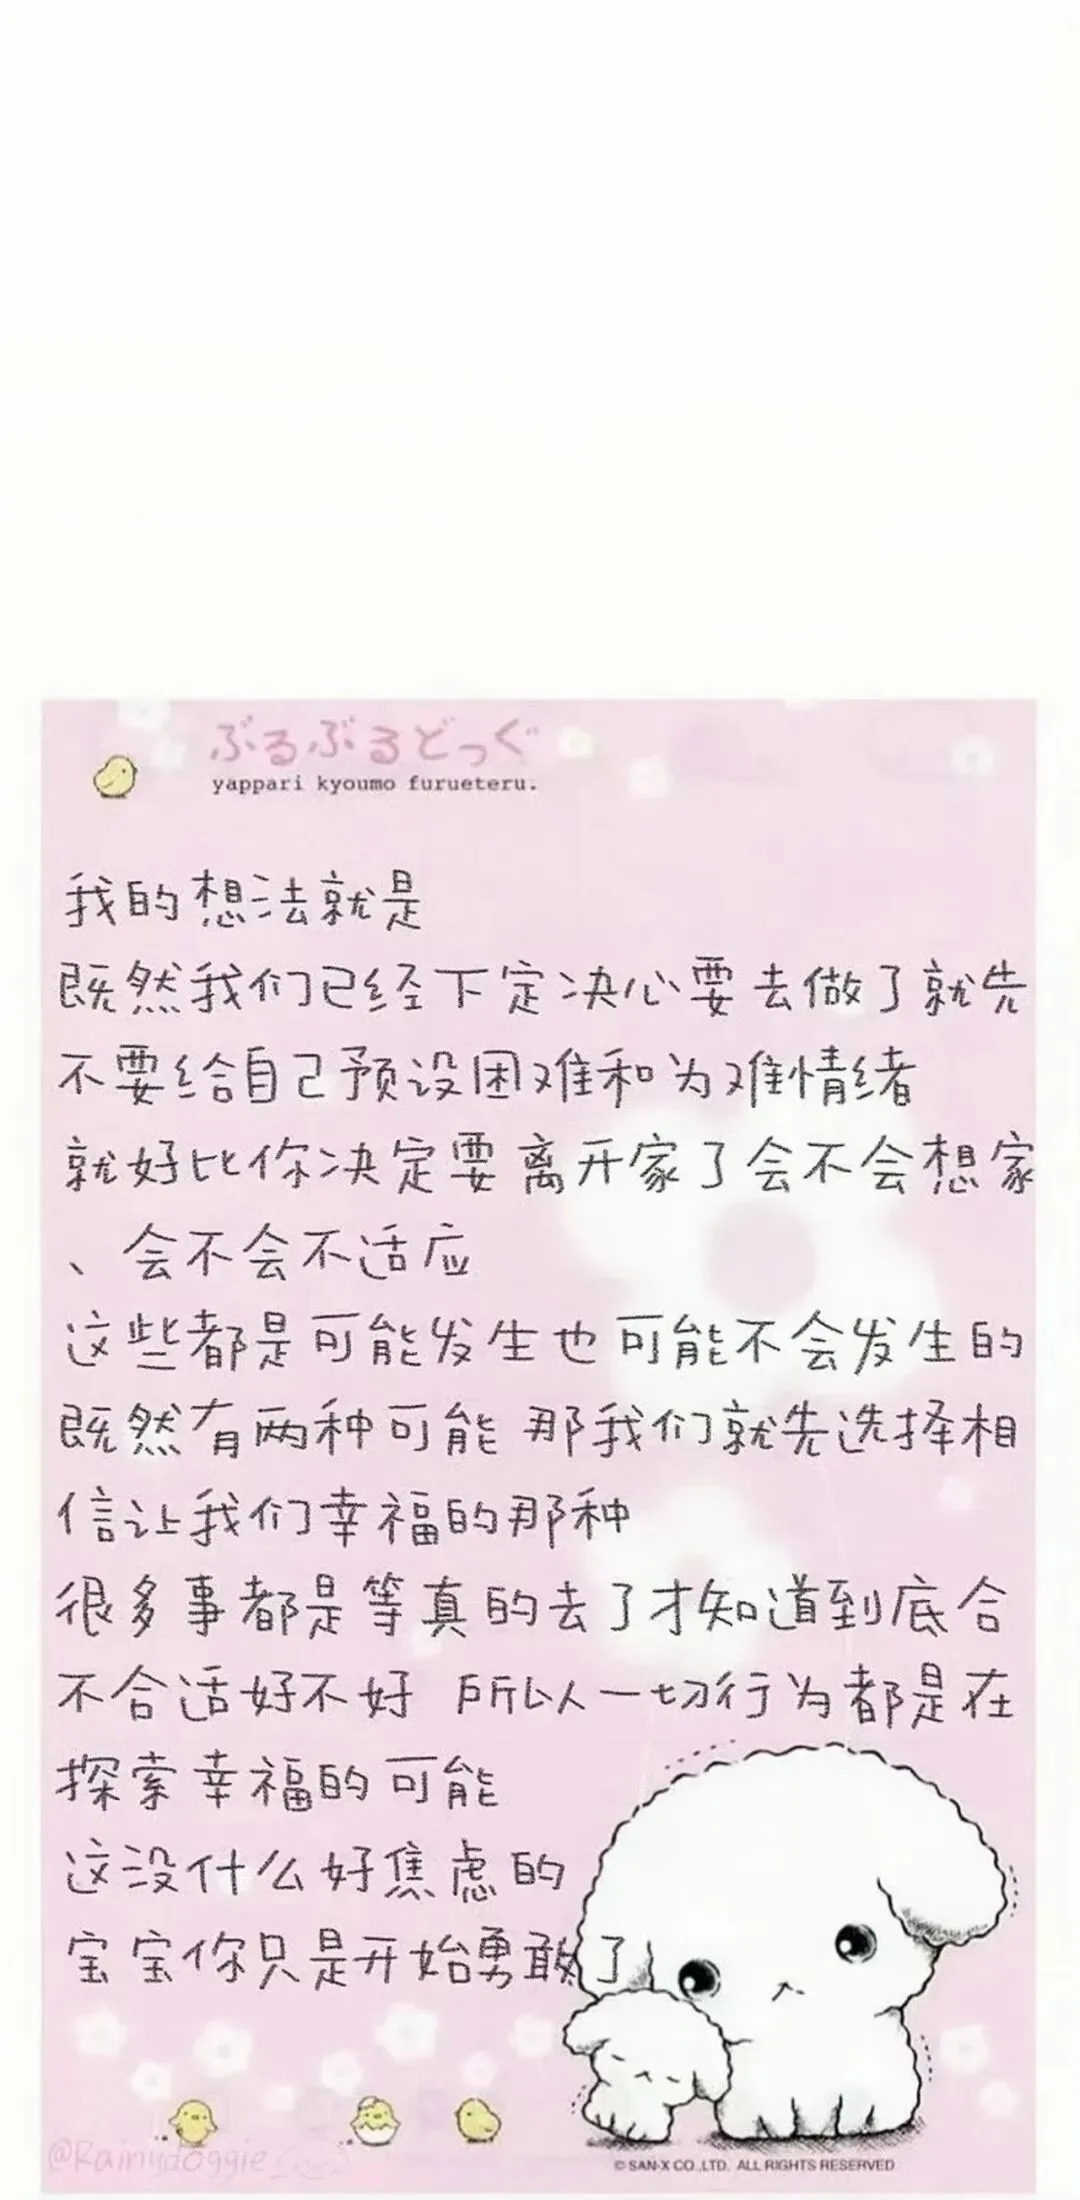 ぶるぶるどっぐ
yappari kyoumo furueteru.
我的想法就是
既然我们已经下定决心要去做了就先
不要给自己预设困难和为难情绪
就好比你决定要离开家了会不会想家
、会不会不适应
这些都是可能发生也可能不会发生的
既然有两种可能 那我们就先选择相
信让我们幸福的那种
很多事都是等真的去了才知道到底合
不合适好不好 所以一切行为都是在
探索幸福的可能
这没什么好焦虑的
宝宝你只是开始勇敢了
@Rainydoggie
© SAN-X CO.,LTD. ALL RIGHTS RESERVED